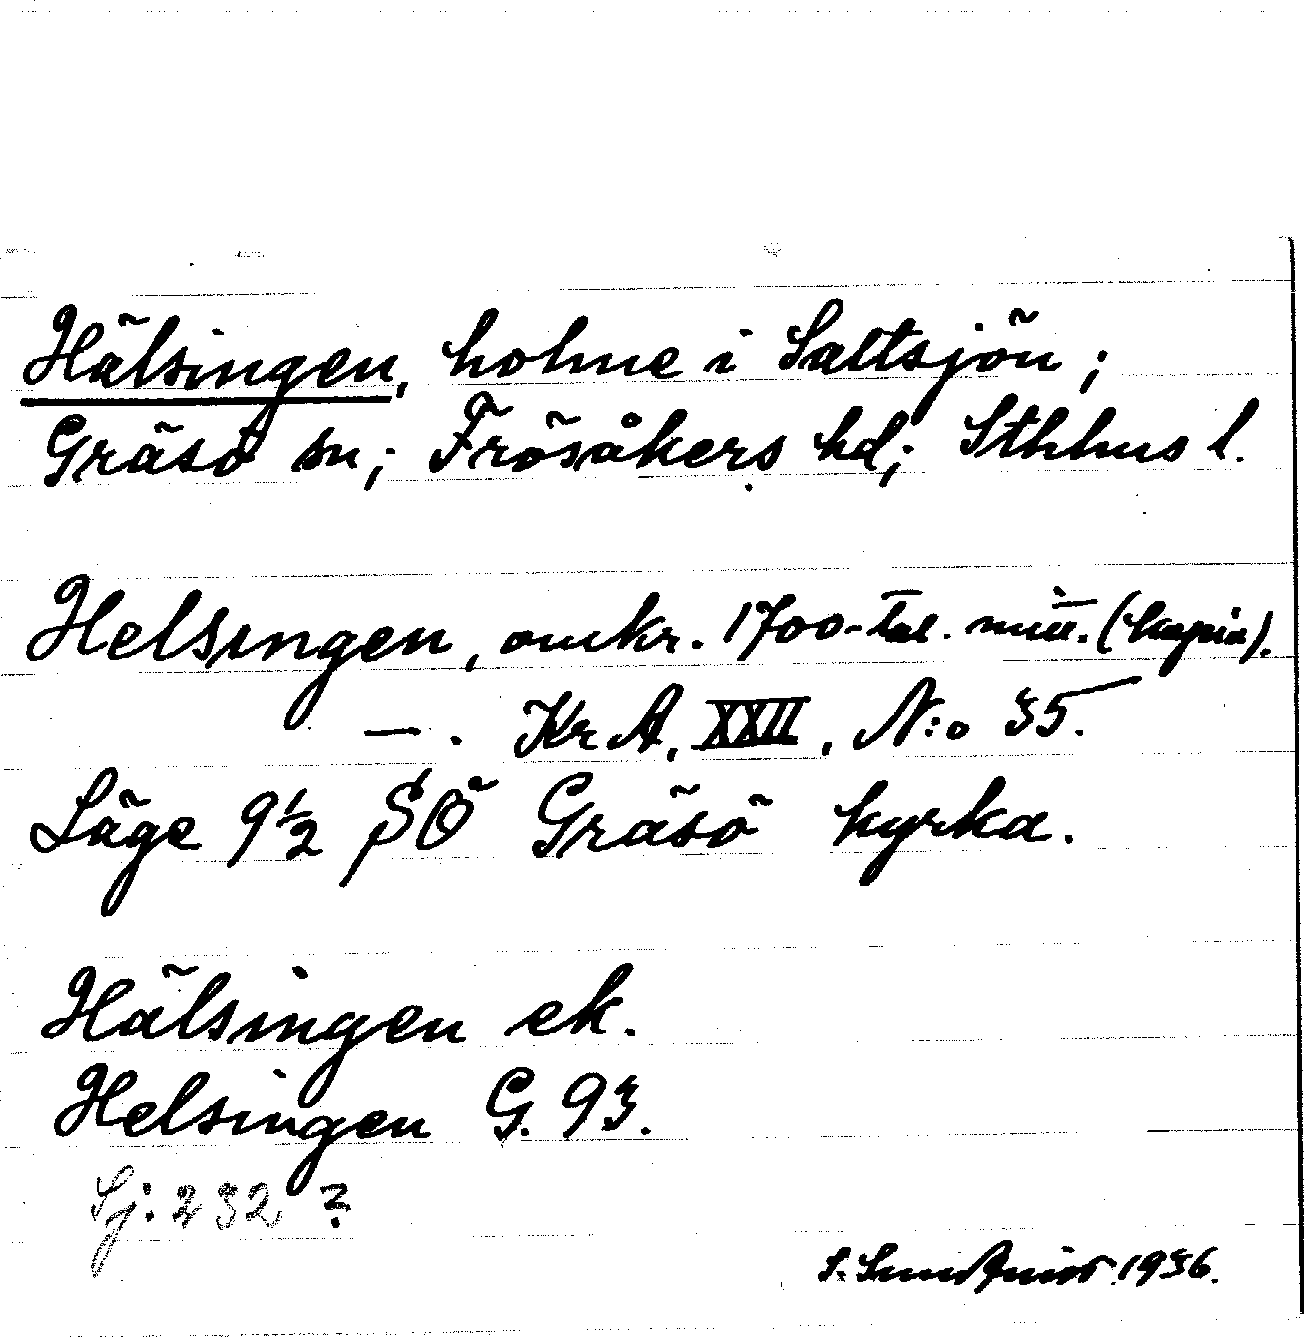 Hälsingen, holme i Saltsjön;
Gräsö sn; Frösåkers hd; Sthlms l.
Helsingen, omkr. 1700-tal. mitt. (kopia).
—. Kr A, XXII, N:o 35.
Läge 9½ SÖ Gräsö kyrka.
Hälsingen ek.
Helsingen G. 93.
Sj: 232 ?
S. Sundqvist 1936.